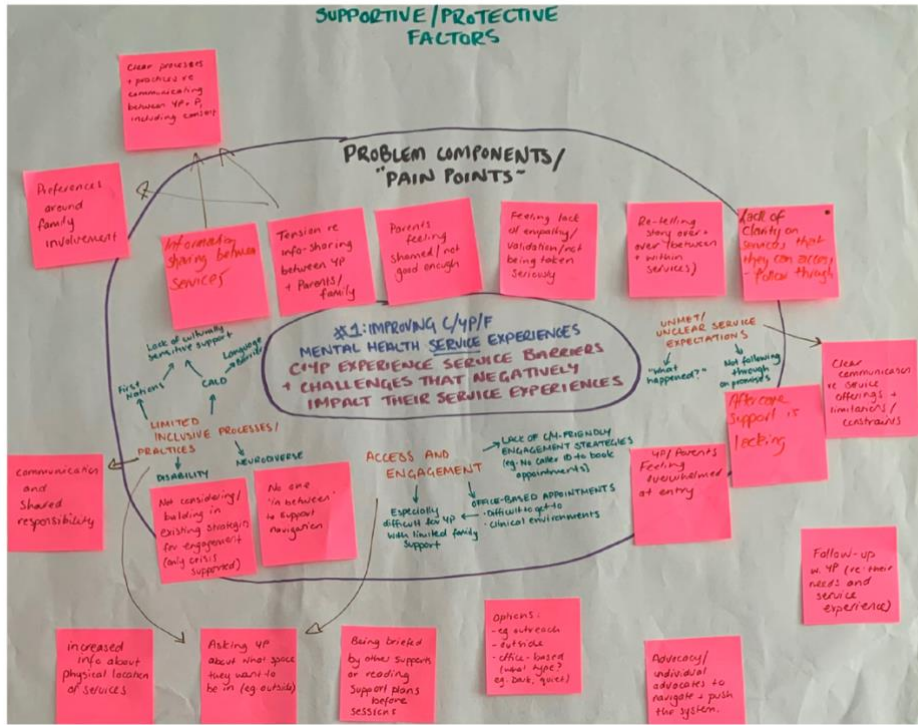 SUPPORTIVE/PROTECTIVE
FACTORS
Clear processes
+ practices re
communicating
between YP + P,
including consent
Preferences
around
family
involvement
PROBLEM COMPONENTS/
"PAIN POINTS"
Information
sharing between
services
Tension re
info-sharing
between YP
+ Parents/
family
Parents
feeling
shamed/not
good enough
Feeling lack
of empathy/
validation/not
being taken
seriously
Re-telling
story over +
over (between
+ within
services)
Lack of
clarity on
services that
they can access
- follow through
#1: IMPROVING C/YP/F
MENTAL HEALTH SERVICE EXPERIENCES
C+YP EXPERIENCE SERVICE BARRIERS
+ CHALLENGES THAT NEGATIVELY
IMPACT THEIR SERVICE EXPERIENCES
Lack of culturally
sensitive support
Language
Barrier
First
Nations
CALD
LIMITED
INCLUSIVE PROCESSES/
PRACTICES
DISABILITY
NEURODIVERSE
UNMET/
UNCLEAR SERVICE
EXPECTATIONS
"what
happened?"
Not following
through
on promises
Clear
communication
re service
offerings +
limitations/
constraints
Aftercare
support is
lacking
YP/Parents
Feeling
overwhelmed
at entry
ACCESS AND
ENGAGEMENT
LACK OF C/Y-FRIENDLY
ENGAGEMENT STRATEGIES
(eg. No caller ID to book
appointments)
OFFICE-BASED APPOINTMENTS
· Difficult to get to
· clinical environments
Especially
difficult for YP
with limited family
support
communication
and
shared
responsibility
Not considering/
building in
existing strategies
for engagement
(only crisis
supported)
No one
"in between"
to support
navigation
Follow-up
w. YP (re: their
needs and
service
experience)
increased
info about
physical location
of services
Asking YP
about what space
they want to
be in (eg outside)
Being briefed
by other supports
or reading
support plans
before
sessions
Options:
- eg outreach
- outside
- office-based
(what type?
eg. Dark, quiet)
Advocacy/
individual
advocates to
navigate + push
the system.